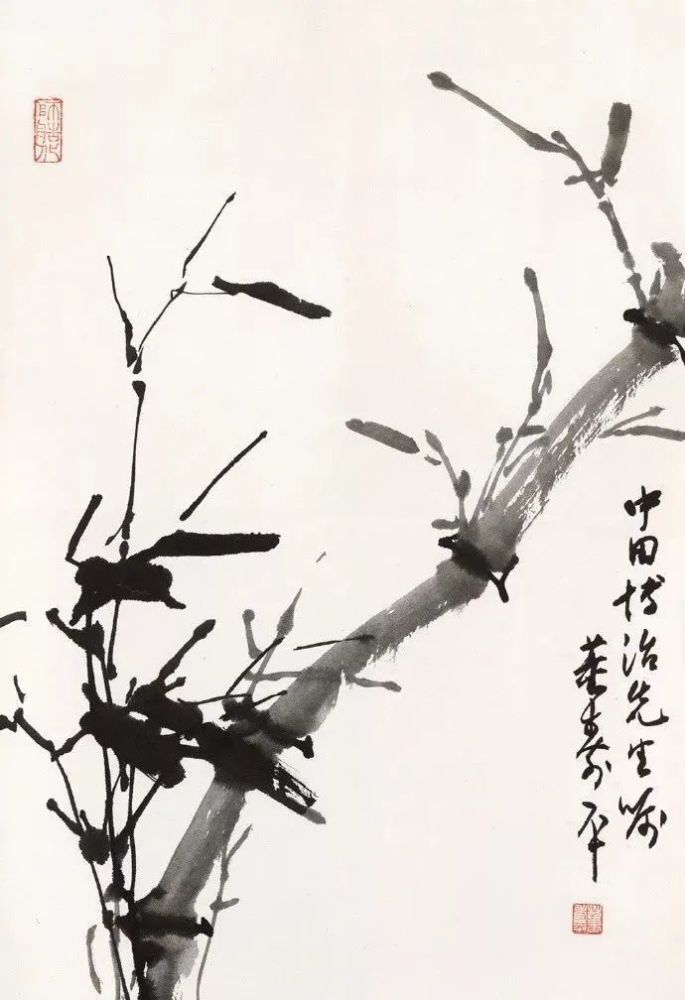 中田博治先生嘱
董寿平